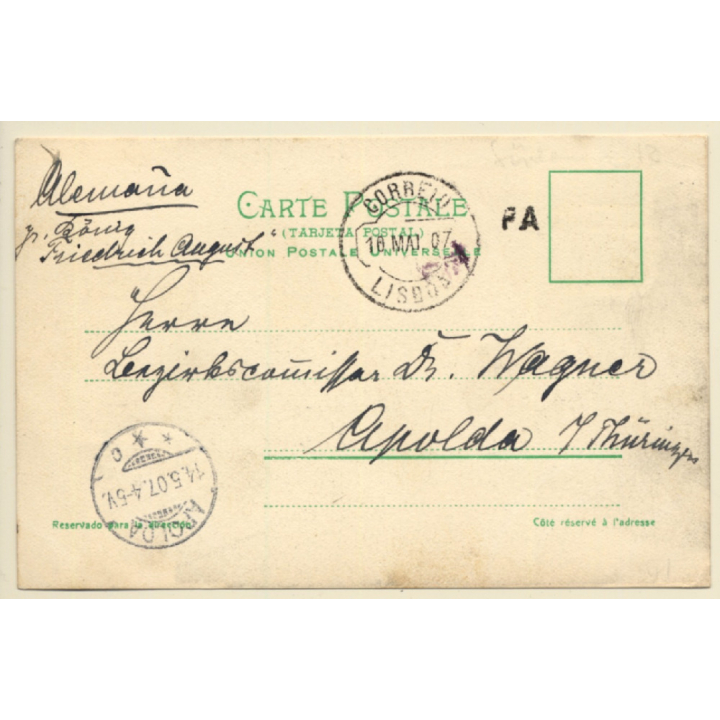 Alemaña
p. König
Friedrich August "
CARTE POSTALE
(TARJETA POSTAL)
UNION POSTALE UNIVERSELLE
CORREIO
10 MAI 07
LISBOA
PA
Herrn
Bezirkscom̄issar Dr. Wagner
Apolda i/Thüringen
APOLDA
14.5.07.4-5V.
* * c
Reservado para la dirección
Côté réservé à l'adresse